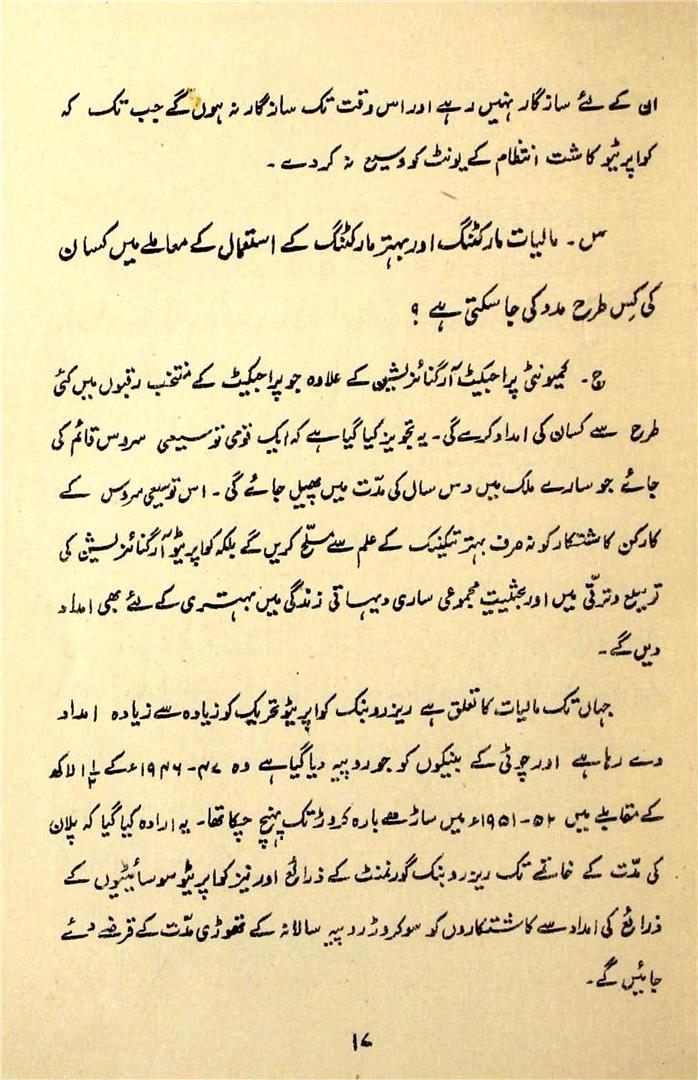 ان کے لئے سازگار نہیں رہے اور اس وقت تک سازگار نہ ہوں گے جب تک کہ
کواپریٹو کاشت انتظام کے یونٹ کو وسیع نہ کردے ۔
س ۔ مالیات مارکٹنگ اور بہتر مارکٹنگ کے استعمال کے معاملے میں کسان
کی کِس طرح مدد کی جا سکتی ہے ؟
ج ۔ کمیونٹی پراجیکٹ آرگنائزیشن کے علاوہ جو پراجیکٹ کے منتخب رقبوں میں کئی
طرح سے کسان کی امداد کرے گی ۔ یہ تجویز کیا گیا ہے کہ ایک قومی توسیعی سروس قائم کی
جائے جو سارے ملک میں دس سال کی مدّت میں پھیل جائے گی ۔ اس توسیعی سروس کے
کارکن کاشتکار کو نہ صرف بہتر تیکنیک کے علم سے مسلّح کریں گے بلکہ کواپریٹو آرگنائزیشن کی
توسیع و ترقّی میں اور بحثیتِ مجموعی ساری دیہاتی زندگی میں بہتری کے لئے بھی امداد
دیں گے ۔
جہاں تک مالیات کا تعلق ہے ریزرو بنک کواپریٹو تحریک کو زیادہ سے زیادہ امداد
دے رہا ہے اور چوٹی کے بینکوں کو جو روپیہ دیا گیا ہے وہ ۴۷-۱۹۴۶ء کے ۱½ لاکھ
کے مقابلے میں ۵۲-۱۹۵۱ء میں ساڑھے بارہ کروڑ تک پہنچ چکا تھا ۔ یہ ارادہ کیا گیا کہ پلان
کی مدّت کے خاتمے تک ریزرو بنک گورنمنٹ کے ذرائع اور نیز کواپریٹو سوسائیٹیوں کے
ذرائع کی امداد سے کاشتکاروں کو سو کروڑ روپیہ سالانہ کے تھوڑی مدّت کے قرضے دئے
جائیں گے ۔
۱۷